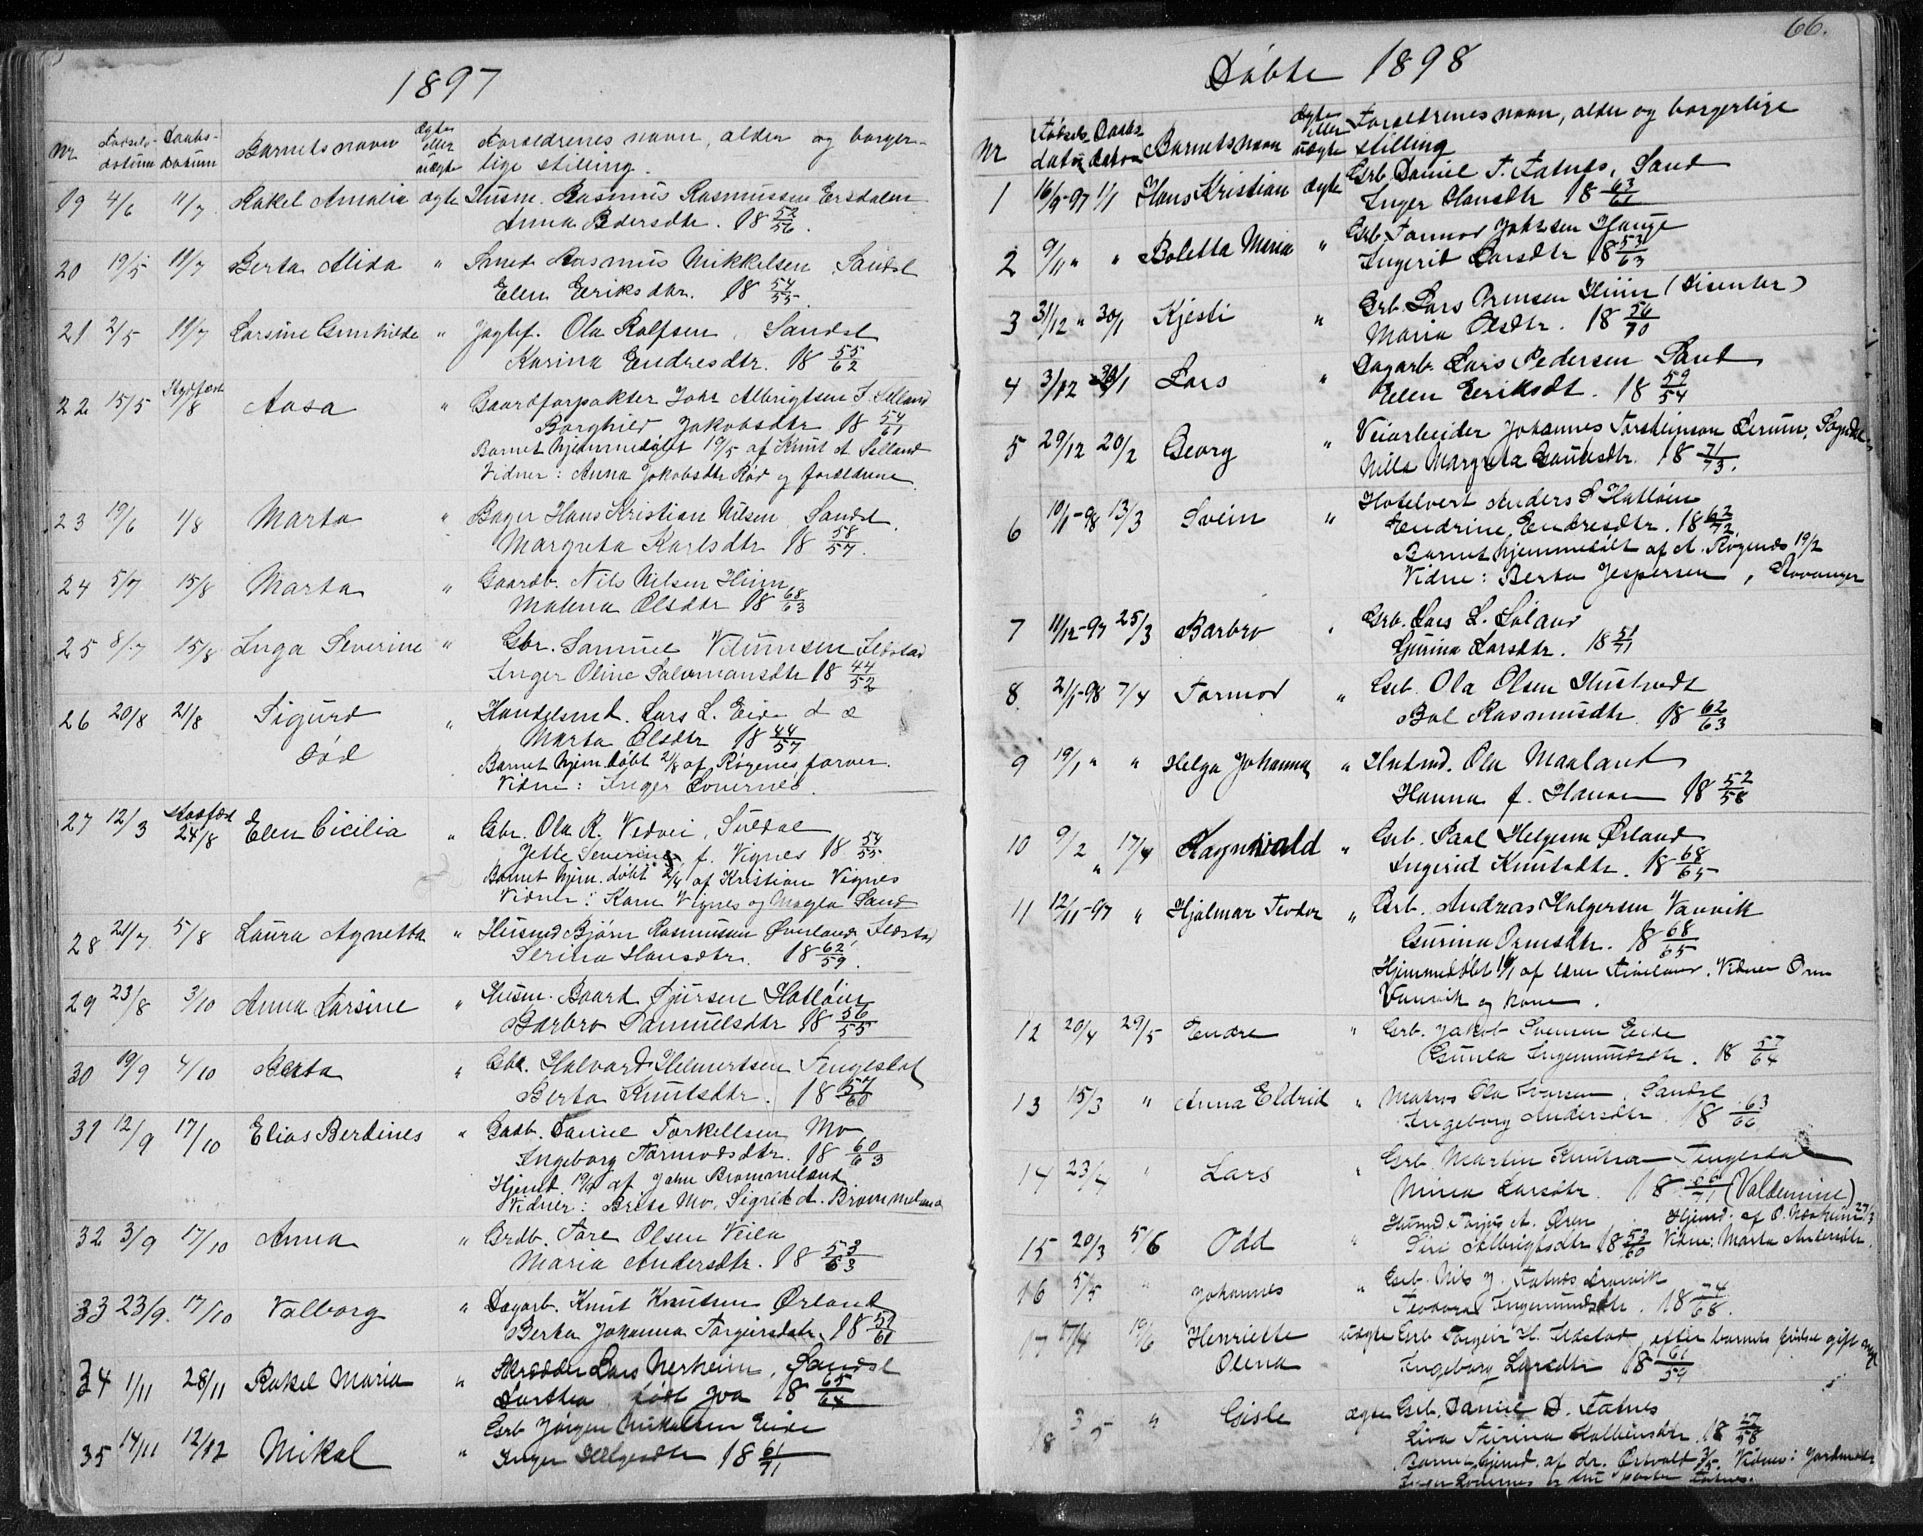 66.
1897
Nr. Fødsels- datum Daabs- datum Barnets navn ægte eller uægte Forældrenes navn, alder og borger-
lige stilling.
19 4/6 11/7 Rakel Amalia ægte Husm. Rasmus Rasmussen Ersdalen
Anna Pedersdtr. 18 52/56.
20 19/5 11/7 Berta Alida " Smed Rasmus Mikkelsen Sandsl
Elen Eeriksdtr. 18 54/55.
21 2/5 11/7 Larsine Gunhilde " Jagtsf. Ola Rolfsen, Sandsl
Karina Endresdtr. 18 55/62
22 15/5 Stadfæst 1/8 Aasa " Baardforpakter Johs Albrigtsen
Borghild Jakobsdtr 18 54/61
Barnet hjemmedøbt 19/5 af Knut A Selland
Vidner: Anna Jokobsdtr Rød og forældrene
23 19/6 1/8 Marta " Bager Hans Kristian Nilsen Sandsl.
Margreta Karlsdtr 18 58/57.
24 5/7 15/8 Marta " Gaardb. Nils Nilsen Hiim
Malena Olsdtr 18 68/63
25 8/7 15/8 Inga Severine " Gbr. Samuel
Inger Oline Salomansdtr 18 44/52
26 20/8 21/8 Sigurd " Handelsmd. Lars L. Eide
død Marta Olsdtr 18 44/57
Barnet hjem.døbt 21/8 af Røgenes
Vidne: Inger
27 12/3 Stadfæst 24/8 Elen Cicilia " Gbr. Ola R. Vedvei, Suldal
Jette Severine f. Vignes 18 54/55
Barnet hjem. døbt 2/4 af Kristian Vignes
Vidner: Karen Vignes og Magla Sand
28 21/7 5/8 Laura Agnetta " Husmd Bjørn Rasmussen Øverland,
Serina Hansdtr. 18 62/59.
29 23/8 3/10 Anna Larsine " Husm. Baard Sjursen Hatløin
Barbro Samuelsdtr 18 56/55
30 19/9 4/10 Berta " Gbr. Halvard Helmertsen Tengesdal
Berta Knutsdtr. 18 57/60
31 12/9 17/10 Elias Berdines " Gadb. Daniel Torkellsen Mo
Ingeborg Tormodsdtr. 18 60/63
Hjemd 19/9 af John Brommeland
Vidner: Brite Mo, Sigrid A. Brommeland
32 3/9 17/10 Anna " Grdb. Tore Olsen Veila
Maria Andersdtr. 18 53/63
33 23/9. 17/10 Valborg " Dagarb. Knut Knutsen Ørland
Berta Johanna Torgersdatr. 18 57/61
34 1/11 28/11 Rakel Maria " Skrædder Lars Nerheim, Sandsl
Dorthea født Joa 18 65/64
35 14/11 12/12 Mikal " Grb Jørgen Mikalsen Eide
Inger Helgesdtr 18 61/71
Døbte 1898
Nr Fødsels datum Daabs- datum Barnets navn ægte eller uægte Forældrenes navn, alder og borgerlige
stilling
1 16/9-97 1/1 Hans Kristian ægte Grb. Daniel T. Fatnes, Sand
Inger Hansdtr 18 63/61
2 9/11 " " Boletta Maria " Grb. Tormod Johnsen Hauge
Ingerid Larsdtr 18 53/63
3 31/12 " 30/1 Kjesti " Grb. Lars Ormsen Hiim (Disenter)
Maria Olsdtr. 18 56/70
4 3/12 30/1 Lars " Dagarb. Lars Pedersen Sand
Elen Eeriksdt. 18 59/54
5 29/12 20/2 Georg " Veiarbeider Johannes Torsteinson Lerum, Sogndal
Nilla Margreta Gautesdtr. 18 71/73.
6 10/1-98 13/3 Svein " Hotelvert Anders S Hatløin
Endrine Endresdtr. 18 62/72
Barnet hjemmedøbt af A. Røgenes 19/2
Vidne: Berta Jespersen, Stavanger
7 11/12-97 25/3 Barbro " Grb. Lars L. Søland
Gurina Larsdtr. 18 51/71
8 21/1-98 7/4 Tormod " Grb. Ola Olsen Hustvedt
Bol Rasmusdtr. 18 62/63
9 19/1 " " Helga Johanna " Hndmd. Ola Maaland
Hanna f. Hansen 18 52/58
10 9/2 " 17/4 Ragnvald " Grb. Paal Helgesen Ørland
Ingerid Knutsdtr. 18 68/65
11 12/11-97 " Hjalmar Teodor " Grb. Andreas Halgersen Vanvik
Gurina Ormsdtr. 18 68/65
Hjemmedøbt af Vidner Orm
Vanvik og kone.
12 20/4 29/5 Endre " Grb. Jakob Svensen Eide
Gunla Ingemundsdtr. 18 57/64
13 15/3 " Anna Eldrid " Matros Ola Iversen, Sandsl
Ingeborg Andersdtr. 18 63/66
14 23/4 " Lars " Grb. Martin Knutsen Tengesdal
Mina Larsdtr. 18 (Valdemine)
15 20/3 5/6 Odd " Husmd Torjus A. Øren Hjemd. af O. 27/3
Siri Albrigtsdtr 18 53/60 Vidne: Marta Andersdtr.
16 5/5 " Johannes " Grb. Nils J. Fatnes
Teodora Ingemundsdtr. 18 74/68.
17 17/4 19/6 Henriette uægte Grb Torgeir H. efter barnets fødsel gift
Olena Ingeborg Larsdtr 18 61/59
18 3/5 " Gisle ægte Grb. Daniel D. Fatnes
Liva Turina 18 27/58
Barnet hjemd. af dr. Ørtvalt 3/5. Vidner: Jordmoder